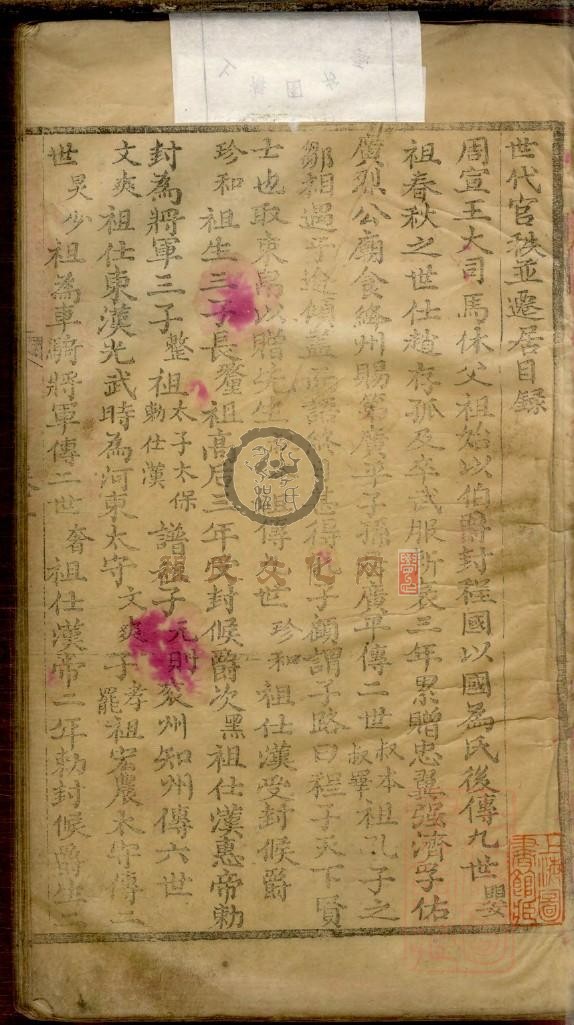 世代官秩並遷居目錄
周宣王大司馬休父祖始以伯爵封程國以國爲氏後傳九世嬰
祖春秋之世仕趙存孤及卒武服所衰三年累贈忠翼强濟孚佑
廣烈公廟食絳州賜第廣平子孫 廣平傳二世叔本叔畢祖孔子之
鄒相遇于途傾蓋而語終日甚得 子顧謂子路曰程子天下賢
士也取束帛以贈先生 祖傳 世珍和祖仕漢受封候爵
珍和祖生三子長釐祖高后三年受封候爵次黑祖仕漢惠帝勅
封為將軍三子整祖太子太保勅仕漢譜祖子元則衮州知州傳六世
文爽祖仕東漢光武時為河東太守文爽子孝罷祖宏農太守傳二
世昊少祖為車騎將軍傳二世奢祖仕漢帝二年勅封候爵生二
上海圖書館藏